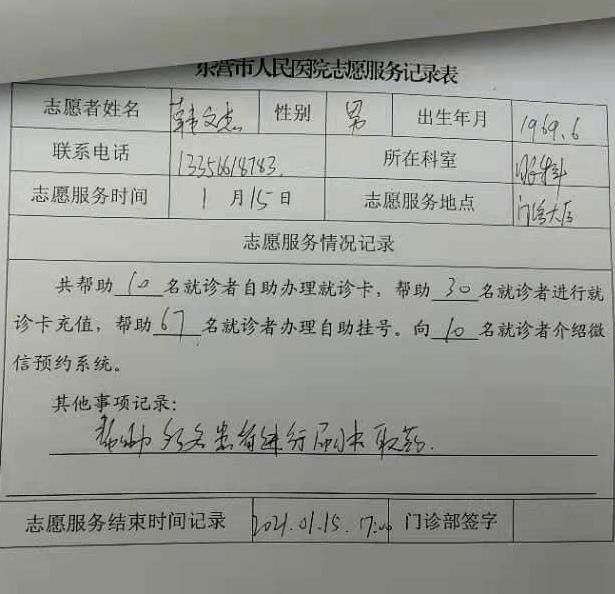 东营市人民医院志愿服务记录表
志愿者姓名 韩文杰 性别 男 出生年月 1969.6
联系电话 13356618783. 所在科室 眼科
志愿服务时间 1月15日 志愿服务地点 门诊大厅
志愿服务情况记录
共帮助10名就诊者自助办理就诊卡，帮助30名就诊者进行就
诊卡充值，帮助67名就诊者办理自助挂号。向10名就诊者介绍微
信预约系统。
其他事项记录：
帮助 名患者进行刷卡取药.
志愿服务结束时间记录 2021.01.15. 17:00 门诊部签字